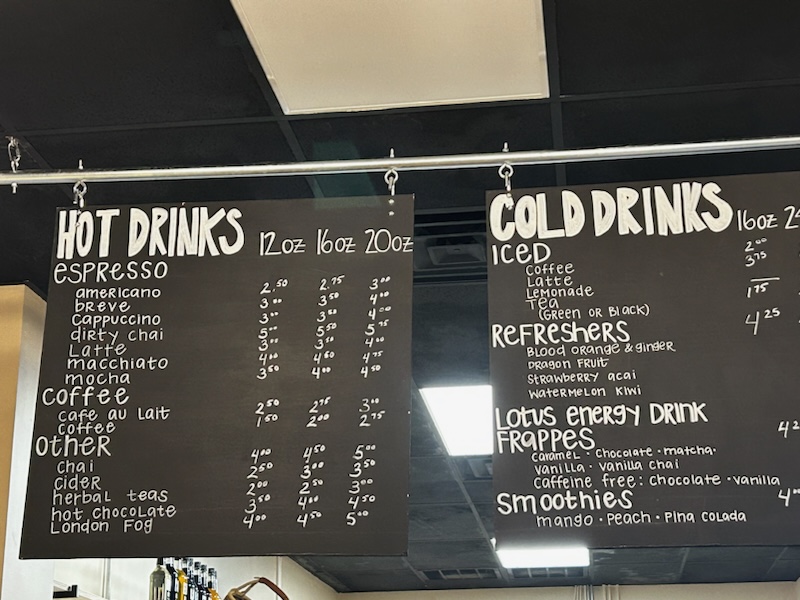 HOT DRINKS 12oz 16oz 20oz
espresso
americano 2.50 2.75 3.00
breve 3.00 3.50 4.00
Cappuccino 3.00 3.50 4.00
dirty chai 5.00 5.50 5.75
Latte 3.00 3.50 4.00
macchiato 4.00 4.60 4.75
mocha 3.50 4.00 4.50
coffee
cafe au Lait 2.50 2.75 3.00
coffee 1.50 2.00 2.75
other
chai 4.00 4.50 5.00
cider 2.50 3.00 3.50
herbal teas 2.00 2.50 3.00
hot chocolate 3.50 4.00 4.50
London Fog 4.00 4.50 5.00
COLD DRINKS 16oz
ICED
coffee 2.00
Latte 3.75
Lemonade —
Tea 1.75
(Green or Black)
Refreshers 4.25
Blood orange & ginger
Dragon Fruit
Strawberry acai
Watermelon Kiwi
Lotus energy Drink
Frappes
caramel · Chocolate · matcha ·
vanilla · vanilla chai
caffeine free: chocolate · vanilla
Smoothies
mango · Peach · Pina Colada